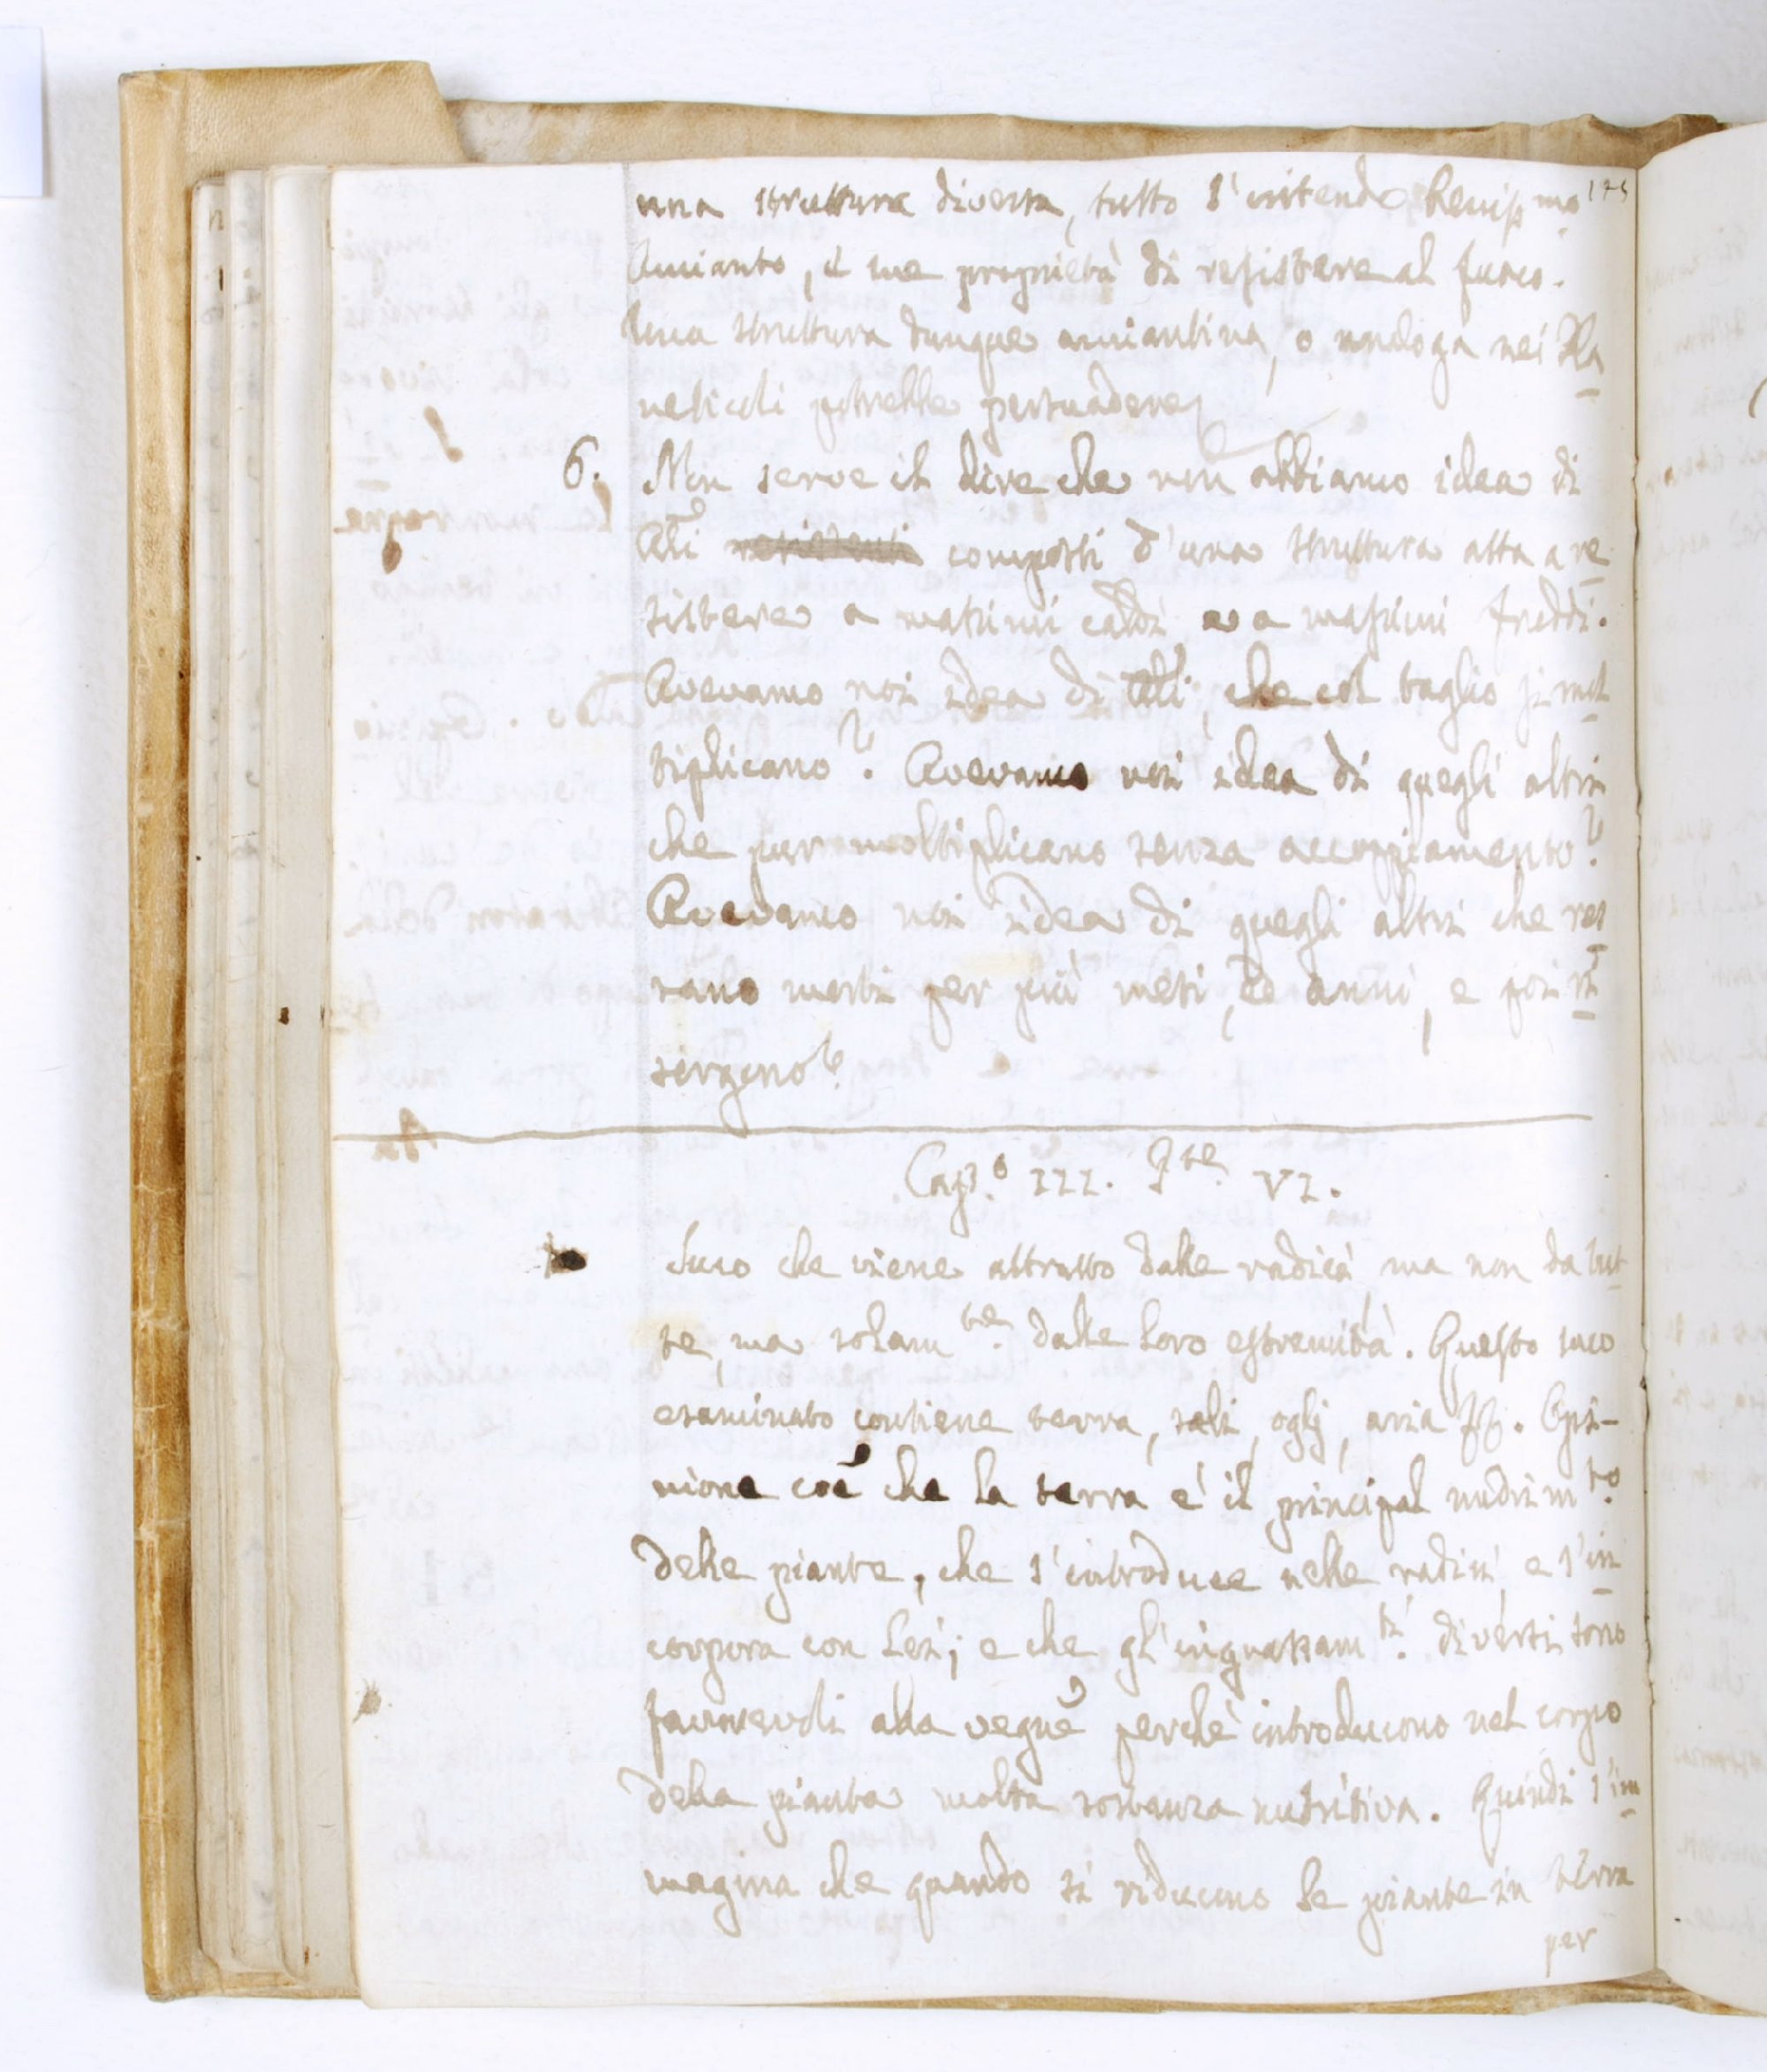 una struttura diversa, tutto s'intende beniss.mo 125
Amianto, e sue proprietà di resistere al fuoco.
Una struttura dunque amiantina, o analoga nei Pla
neticoli potrebbe persuadere
6. Non serve il dire che non abbiamo idea di
Ali composti d'una struttura atta a re
sistere a massimi caldi e a massimi freddi.
Avevamo noi idea di Ali, che col taglio si mol
tiplicano? Avevamo noi idea di quegli altri
che pur moltiplicano senza accoppiamento?
Avevamo noi idea di quegli altri che res
tano morti per più mesi, ed anni, e poi ri
sorgono?
Cap.o III. P.te VI.
Suco che viene attratto dalle radici, ma non da tut
te, ma solam.te dalle loro estremità. Questo suco
esaminato contiene terra, sali, oglj, aria
Opi-
nione cioè che la terra è il principal nudrim.to
delle piante, che s'introduce nelle radici, e s'in
corpora con Lei; e che gl'ingrassam.ti diversi sono
favorevoli alla vegne perchè introducono nel corpo
della pianta molta sostanza nutritiva. Quindi s'im
magina che quando si riducono le piante in terra
per